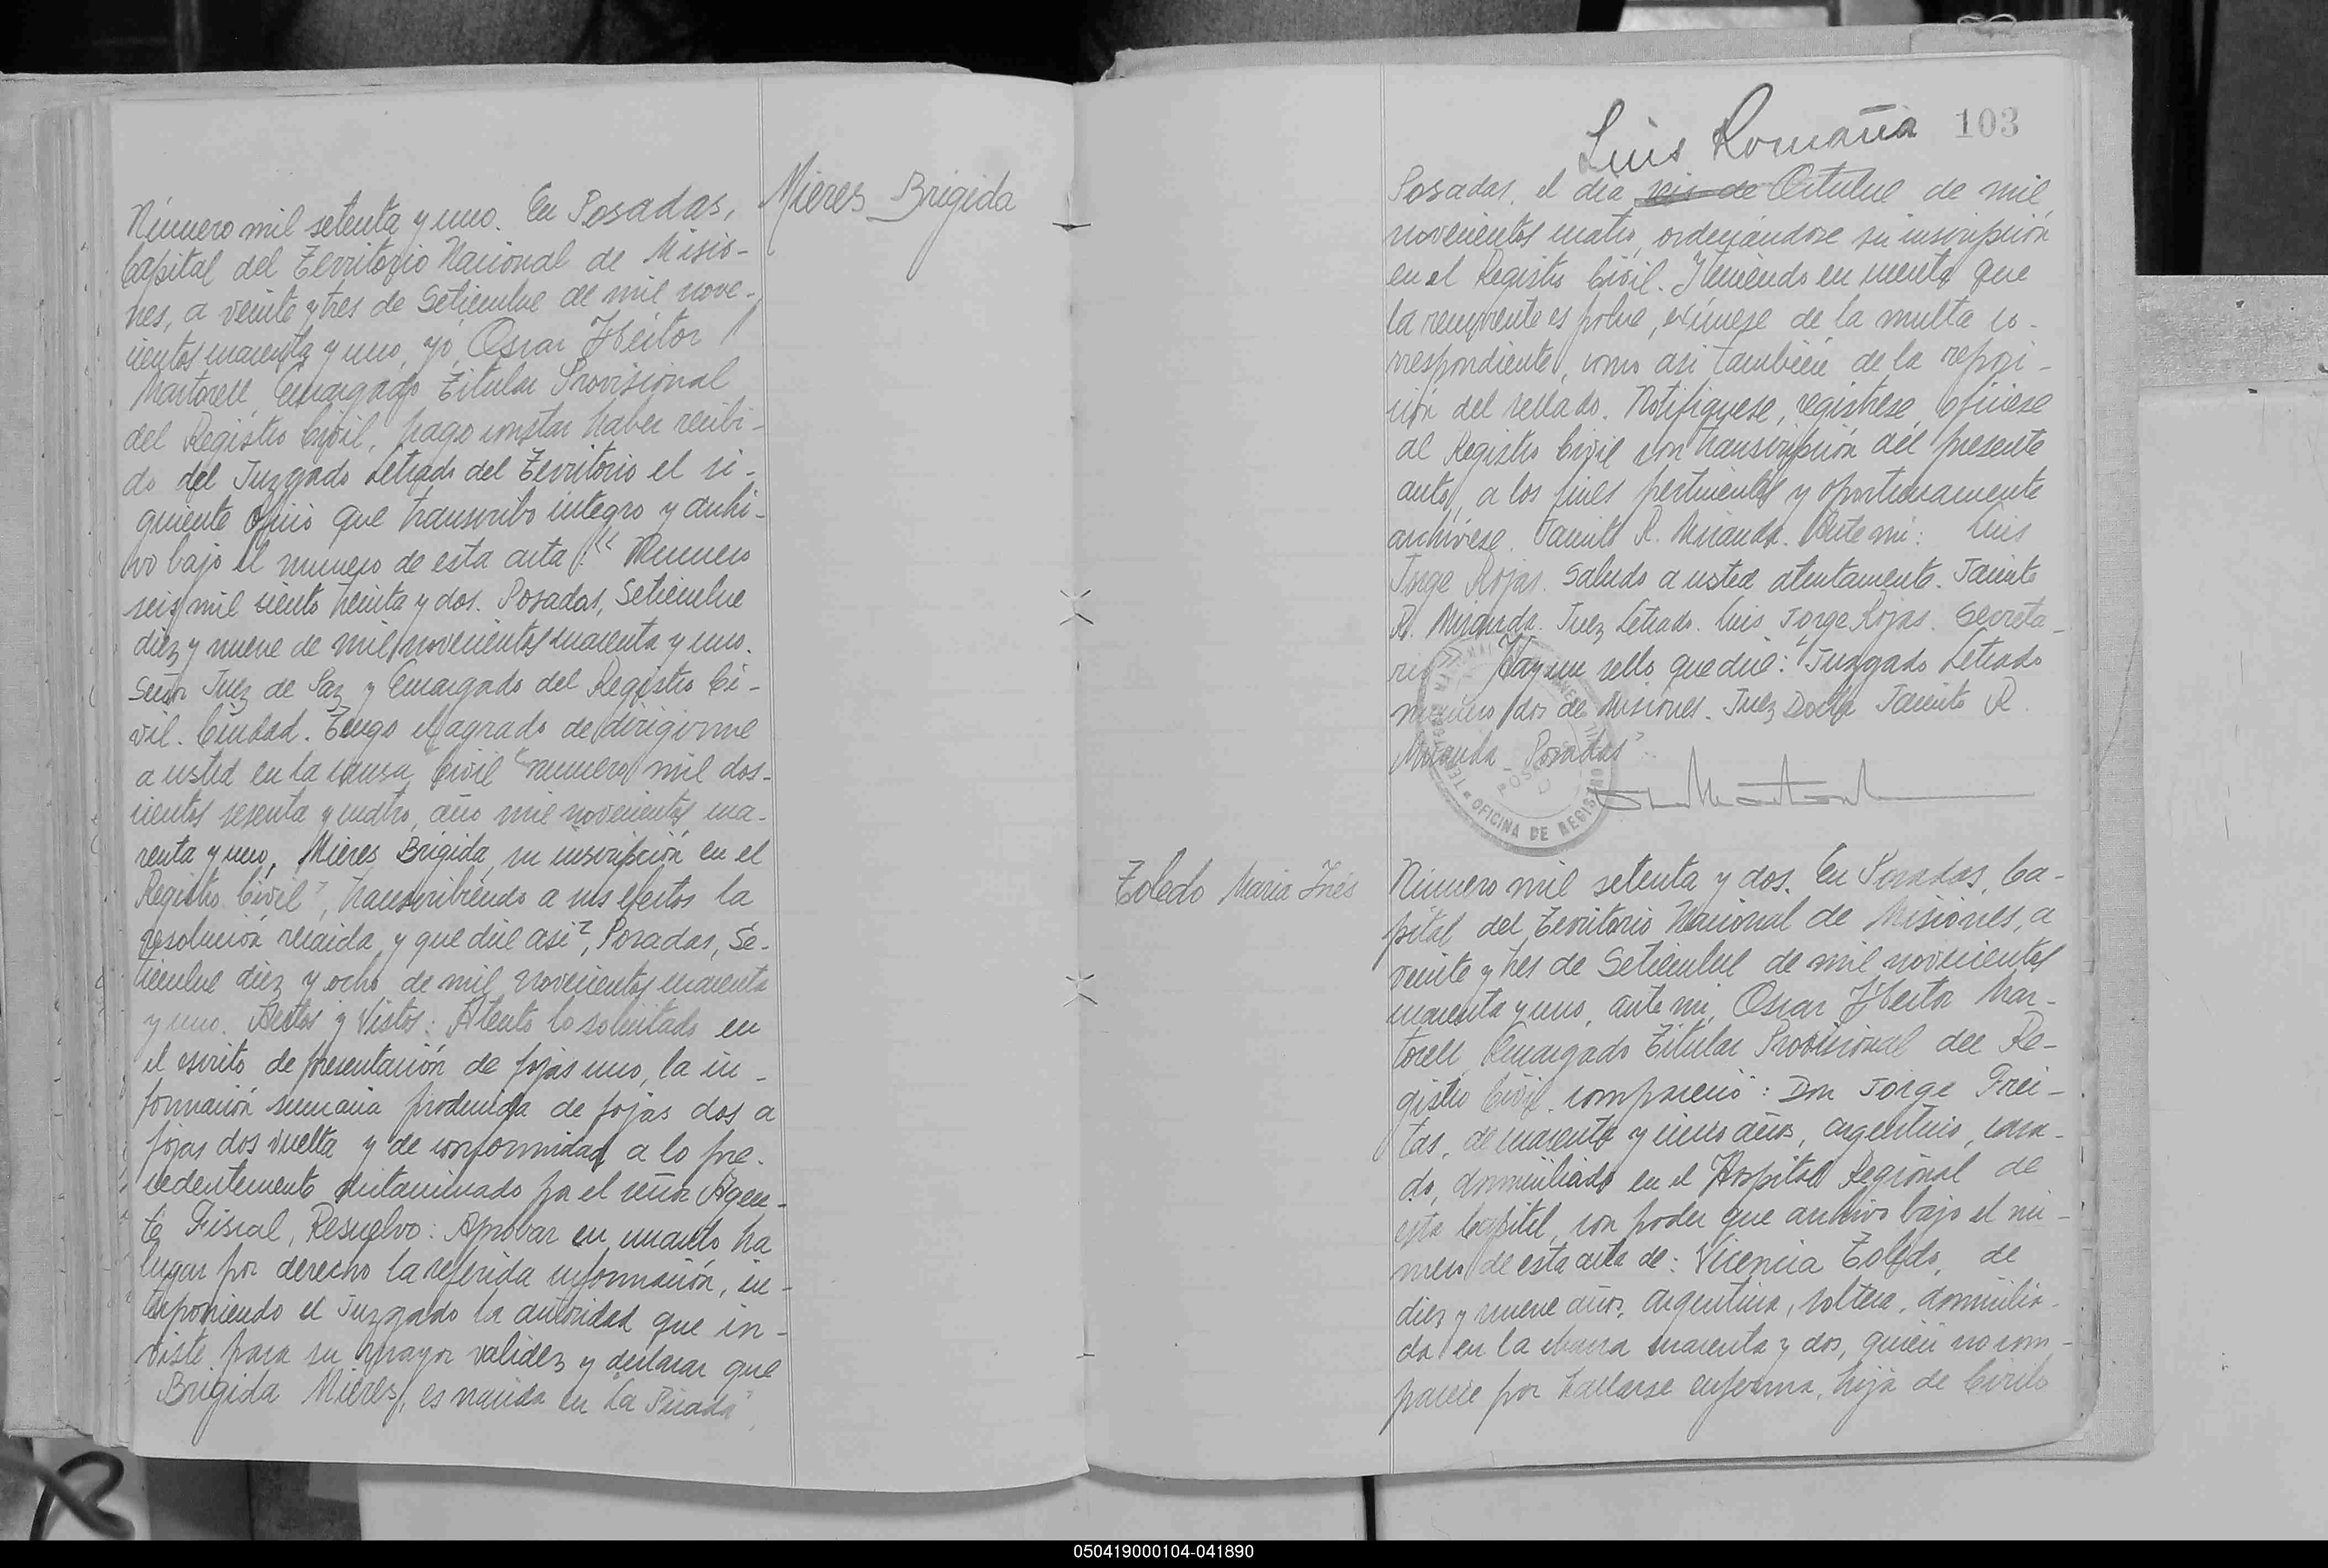 Mieres Brigida
Número mil setenta y uno. En Posadas,
Capital del Territorio Nacional de Misio-
nes, a veinte y tres de Setiembre de mil nove-
cientos cuarenta y uno, yo, Oscar Héctor
Martorell, Encargado Titular Provisional
del Registro Civil, hago constar haber recibi-
do del Juzgado Letrado del Territorio el si-
guiente oficio que transcribo integro y archi-
vo bajo el número de esta acta: "Número
seis mil ciento treinta y dos. Posadas, Setiembre
diez y nueve de mil novecientos cuarenta y uno.
Señor Juez de Paz y Encargado del Registro Ci-
vil. Ciudad. Tengo el agrado de dirigirme
a usted en la causa Civil "número mil dos-
cientos sesenta y cuatro, año mil novecientos cua-
renta y uno, Mieres Brigida, su inscripción en el
Registro Civil", transcribiendo a sus efectos la
resolución recaida y que dice asi", Posadas, Se-
tiembre diez y ocho de mil novecientos cuarenta
y uno. Autos y Vistos: Atento lo solicitado en
el escrito de presentación de fojas uno, la in-
formación sumaria producida de fojas dos a
fojas dos vuelta y de conformidad a lo pre-
cedentemente dictaminado por el señor Agen-
te Fiscal, Resuelvo: Aprobar en cuanto ha
lugar por derecho la referida información, in-
terponiendo el Juzgado la autoridad que in-
viste para su mayor validez y declarar que
Brigida Mieres, es nacida en "La Picada",
Luis Romaña 103
Posadas, el día seis de Octubre de mil
novecientos cuatro, ordenándose su inscripción
en el Registro Civil. Teniendo en cuenta que
la recurrente es pobre, exímese de la multa co-
rrespondiente, como asi también de la reposi-
ción del sellado. Notifíquese, regístrese, ofíciese
al Registro Civil con transcripción del presente
auto, a los fines pertinentes y oportunamente
archívese. Jacinto R. Miranda. Ante mi: Luis
Jorge Rojas. Saludo a usted atentamente. Jacinto
R. Miranda. Juez Letrado. Luis Jorge Rojas. Secreta-
rio". Hay un sello que dice: "Juzgado Letrado
número dos de Misiones. Juez Doctor Jacinto R.
Miranda - Posadas".
OFICINA DE REGISTRO
Toledo Maria Inés
Número mil setenta y dos. En Posadas, Ca-
pital del Territorio Nacional de Misiones, a
veinte y tres de Setiembre de mil novecientos
cuarenta y uno, ante mi, Oscar Héctor Mar-
torell, Encargado Titular Provisional del Re-
gistro Civil, compareció: Don Jorge Frei-
tas, de cuarenta y cinco años, argentino, casa-
do, domiciliado en el Hospital Regional de
esta Capital, con poder que archivo bajo el nú-
mero de esta acta de: Vicencia Toledo, de
diez y nueve años, argentina, soltera, domicilia-
da en la chacra cuarenta y dos, quién no com-
parece por hallarse enferma, hija de Cirilo
050419000104-041890